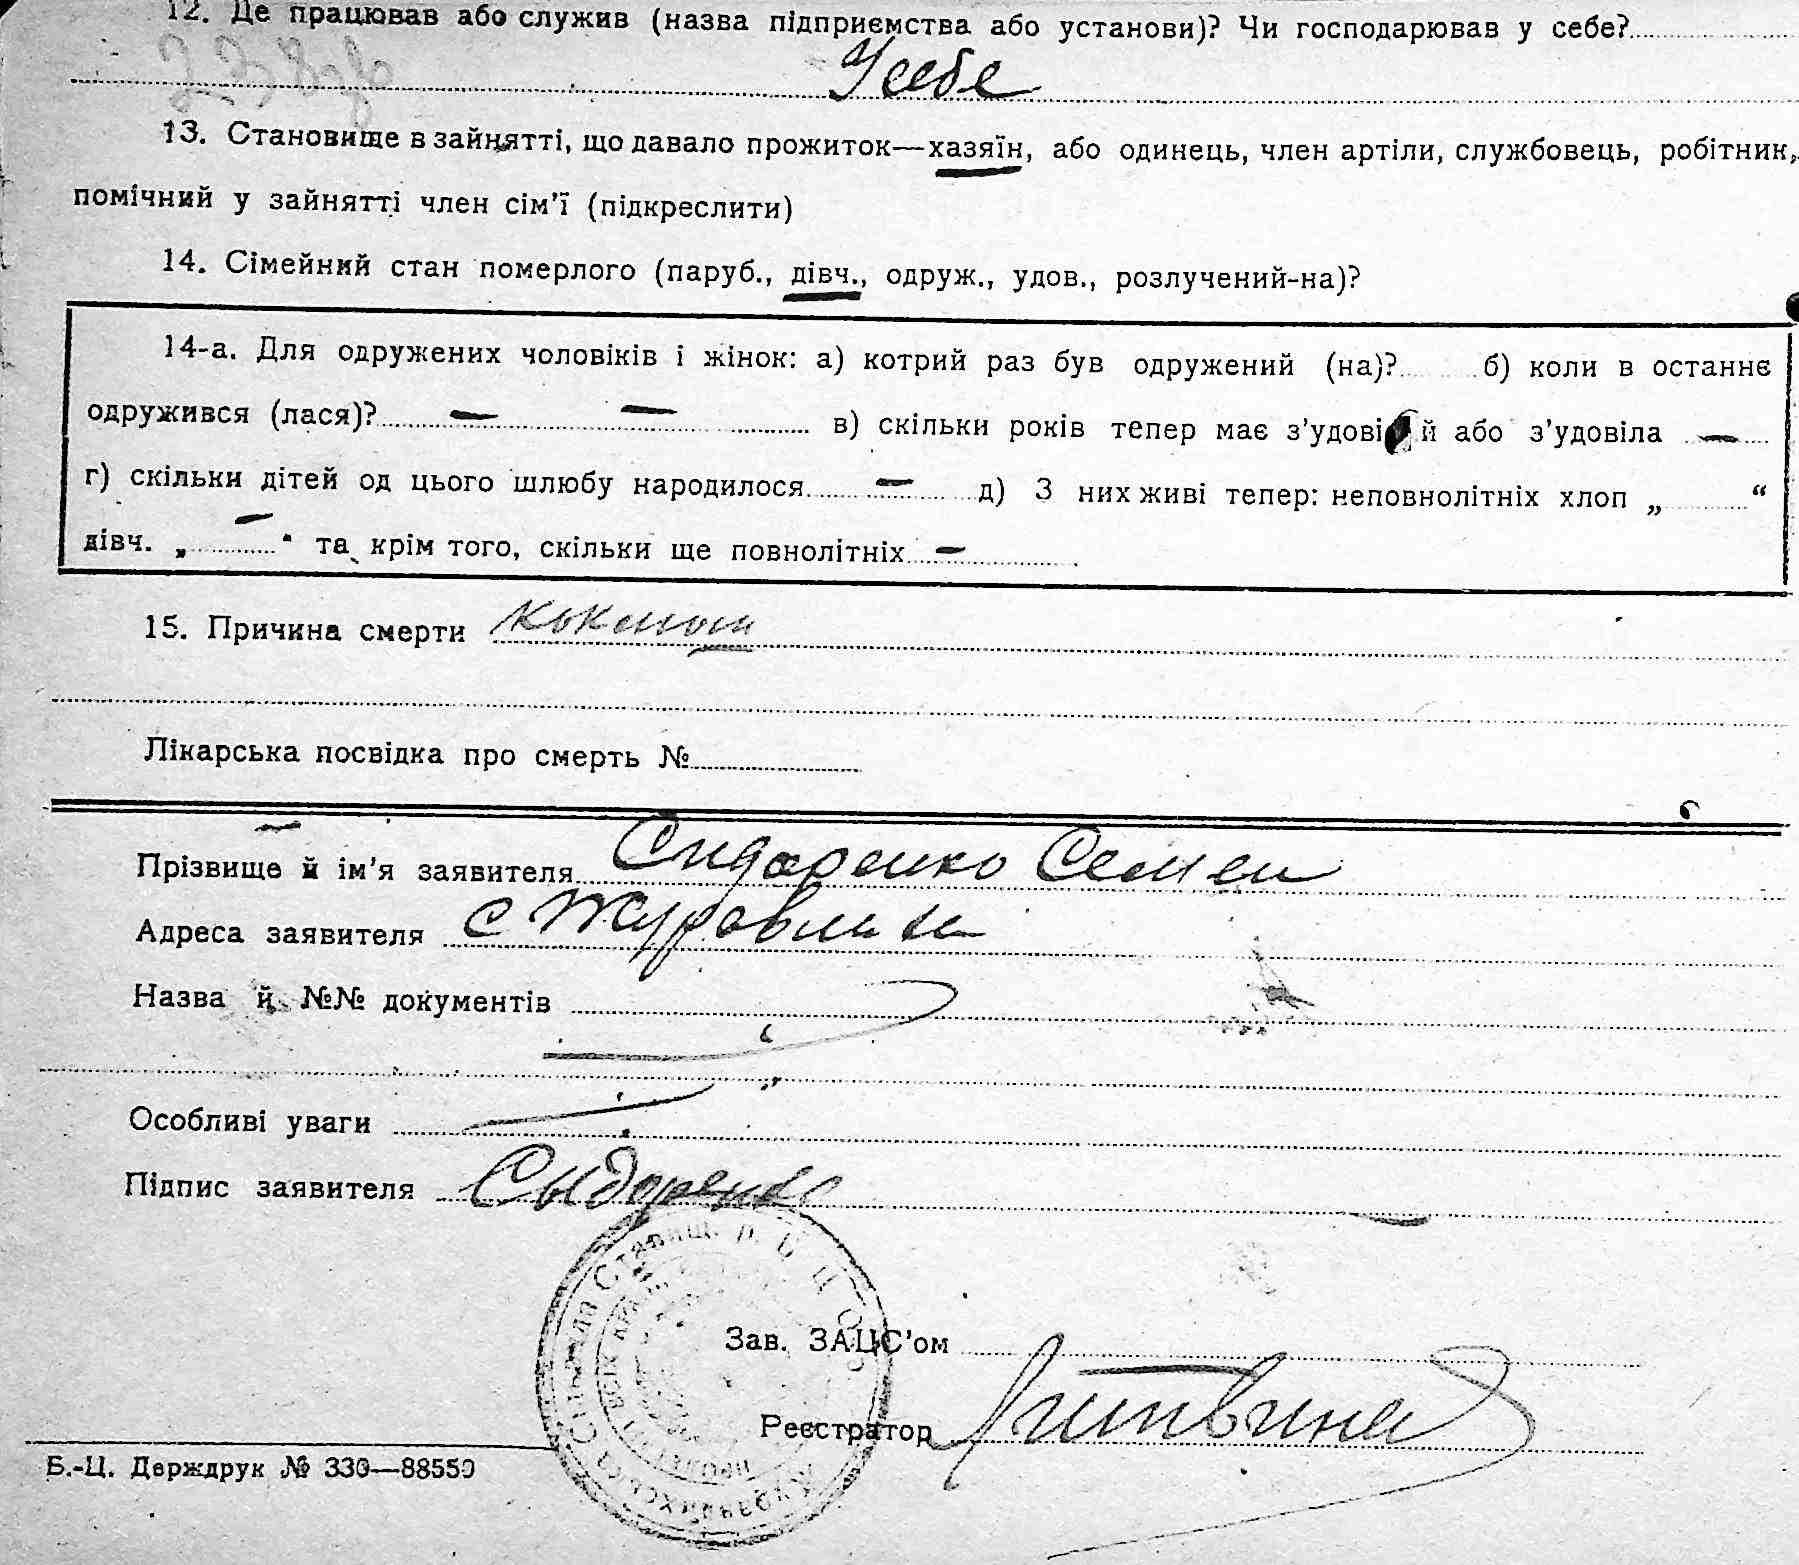 12. Де працював або служив (назва підприємства або установи)? Чи господарював у себе?
У себе
13. Становище в зайнятті, що давало прожиток—хазяїн, або одинець, член артіли, службовець, робітник,
помічний у зайнятті член сім’ї (підкреслити)
14. Сімейний стан померлого (паруб., дівч., одруж., удов., розлучений-на)?
14-а. Для одружених чоловіків і жінок: а) котрий раз був одружений (на)? б) коли в останнє
одружився (лася)? — — в) скільки років тепер має з’удові й або з’удовіла —
г) скільки дітей од цього шлюбу народилося — д) З них живі тепер: неповнолітніх хлоп „ “
дівч. „ — “ та крім того, скільки ще повнолітніх —
15. Причина смерти
Лікарська посвідка про смерть №
Прізвище й ім’я заявителя Сидоренко Семен
Адреса заявителя с Журавлиха
Назва й №№ документів
Особливі уваги
Підпис заявителя Сидоренко
Зав. ЗАЦС’ом
Реєстратор Литвина
Б.-Ц. Держдрук № 330—88550